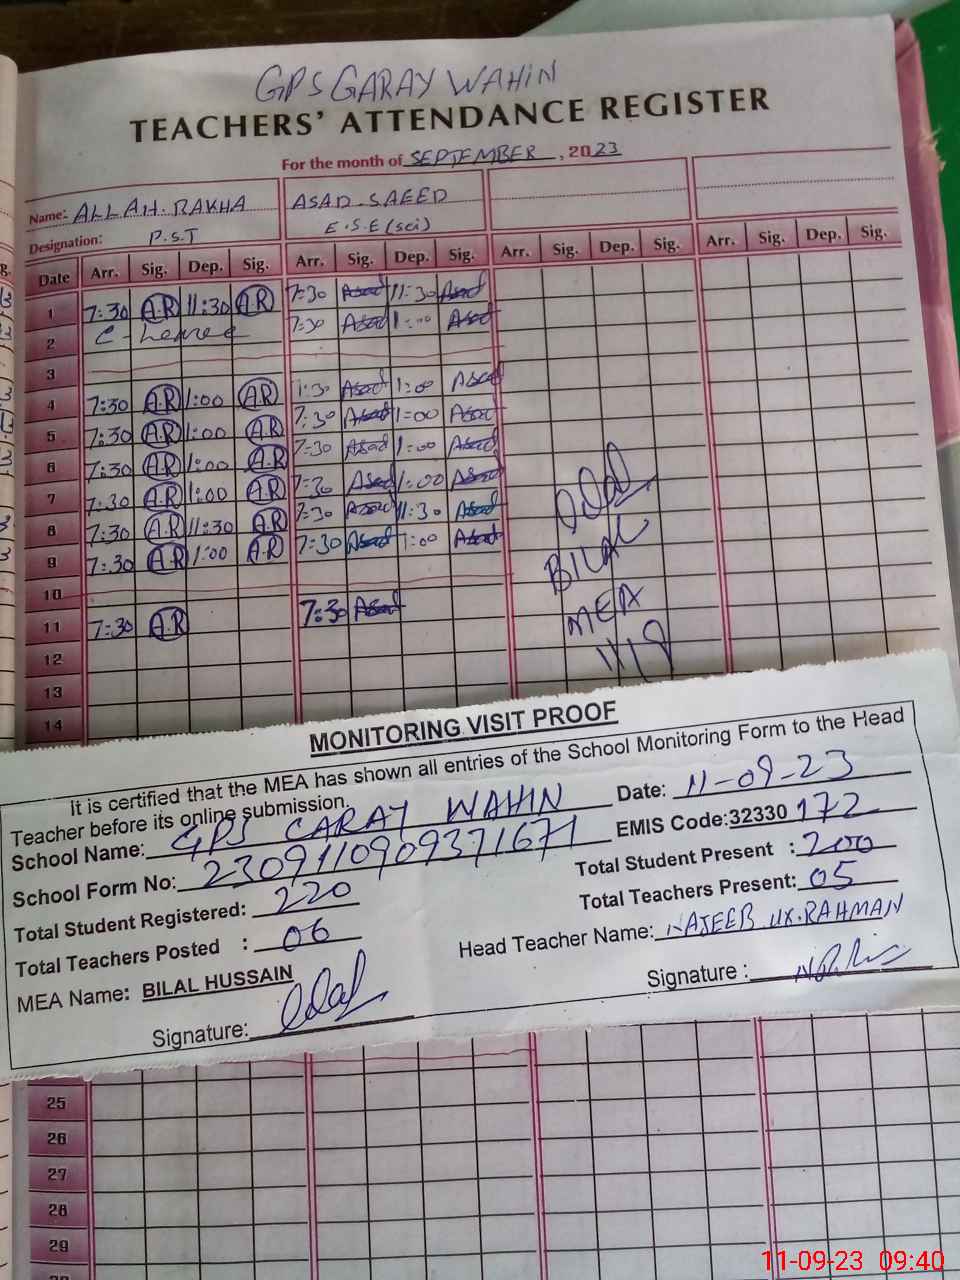 GPS GARAY WAHIN
TEACHERS' ATTENDANCE REGISTER
For the month of SEPTEMBER, 2023
Name: ALLAH.RAKHA ASAD SAEED
Designation: P.S.T E.S.E (sci)
Date Arr. Sig. Dep. Sig. Arr. Sig. Dep. Sig. Arr. Sig. Dep. Sig. Arr. Sig. Dep. Sig.
1 7:30 A.R 11:30 A.R 7:30 Asad 11:30 Asad
2 C-Leave 7:30 Asad 1:00 Asad
3
4 7:30 A.R 1:00 A.R 7:30 Asad 1:00 Asad
5 7:30 A.R 1:00 A.R 7:30 Asad 1:00 Asad
6 7:30 A.R 1:00 A.R 7:30 Asad 1:00 Asad
7 7:30 A.R 1:00 A.R 7:30 Asad 1:00 Asad
8 7:30 A.R 11:30 A.R 7:30 Asad 11:30 Asad
9 7:30 A.R 1:00 A.R 7:30 Asad 1:00 Asad
10
11 7:30 A.R 7:30 Asad
BILAL
MEA
11/9
12
13
14
MONITORING VISIT PROOF
It is certified that the MEA has shown all entries of the School Monitoring Form to the Head
Teacher before its online submission.
Date: 11-09-23
School Name: GPS GARAY WAHIN
EMIS Code: 32330172
School Form No: 2309110909371671
Total Student Present : 200
Total Student Registered: 220
Total Teachers Present: 05
Total Teachers Posted : 06
Head Teacher Name: NAJEEB.UR.RAHMAN
MEA Name: BILAL HUSSAIN
Signature:
Signature :
25
26
27
28
29
11-09-23 09:40